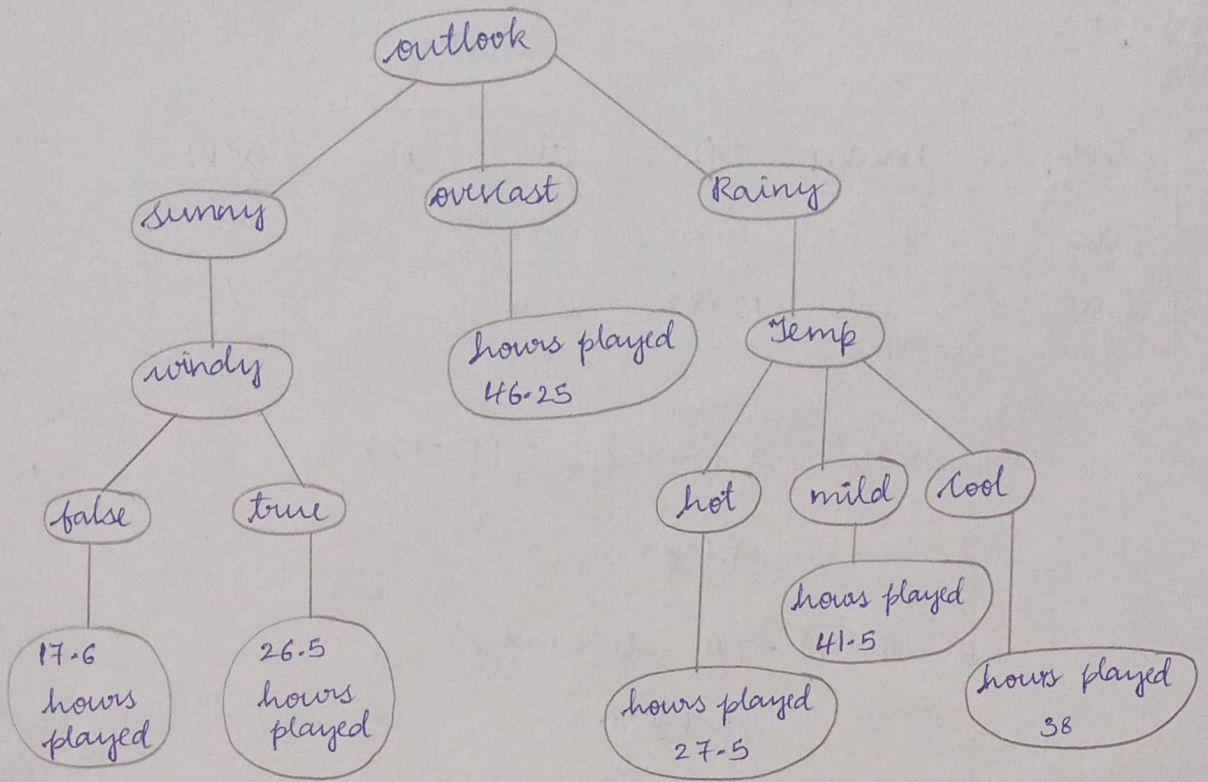 outlook
sunny
overcast
Rainy
windy
hours played
46.25
Temp
false
true
hot
mild
cool
17.6
hours
played
26.5
hours
played
hours played
27.5
hours played
41.5
hours played
38